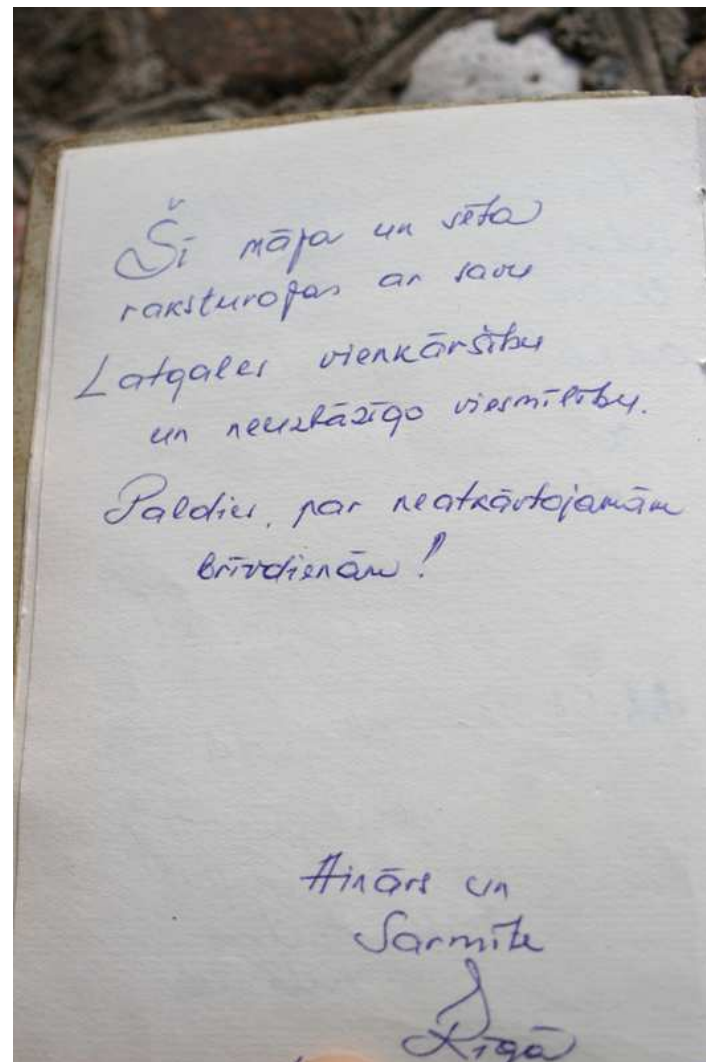 Šī māja un sēta
raksturojas ar savu
Latgales vienkāršību
un neuzbāzīgo viesmīlību.
Paldies, par neatkārtojamām
brīvdienām!
Ainārs un
Sarmīte
Rīgā